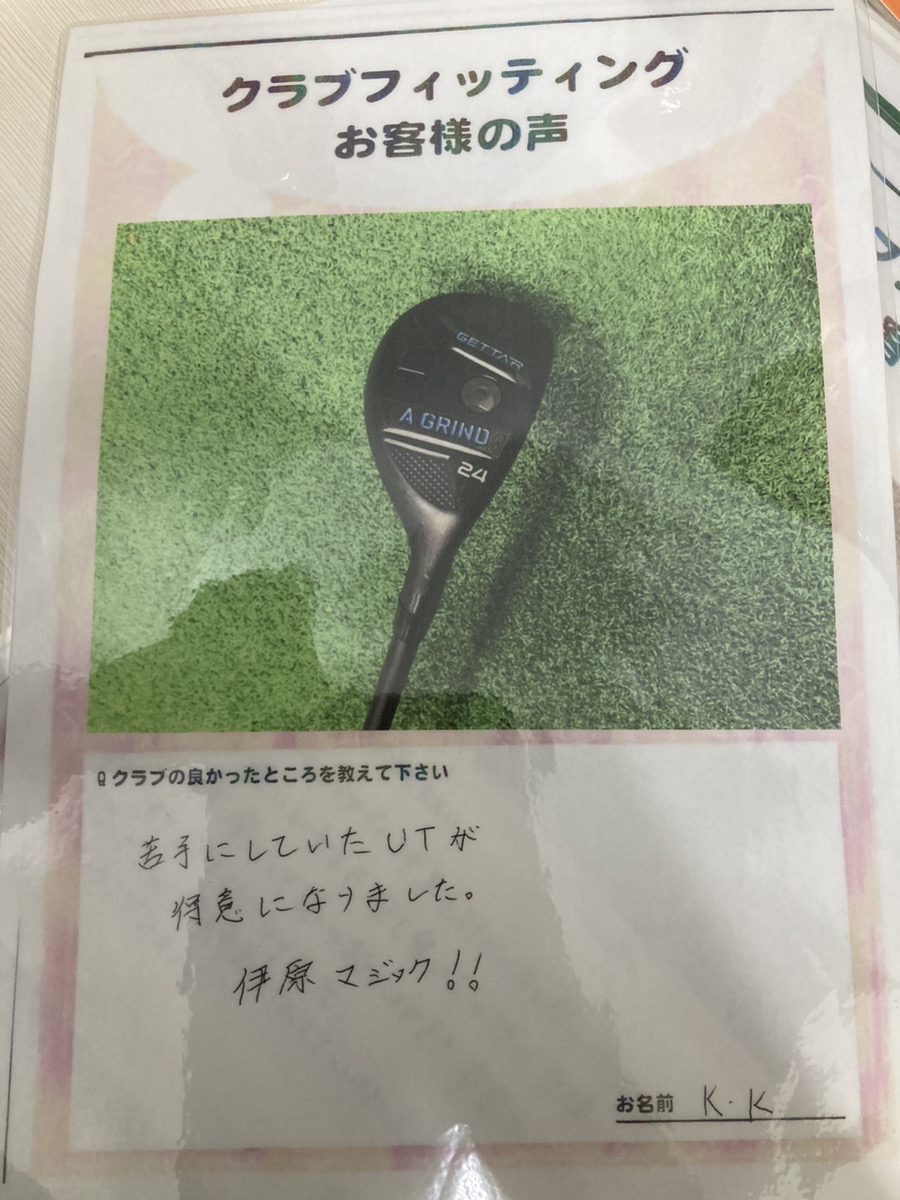 クラブフィッティング
お客様の声
GETTAR
A GRIND
24
Q クラブの良かったところを教えて下さい
苦手にしていたUTが
得意になりました。
伊原マジック!!
お名前 K・K